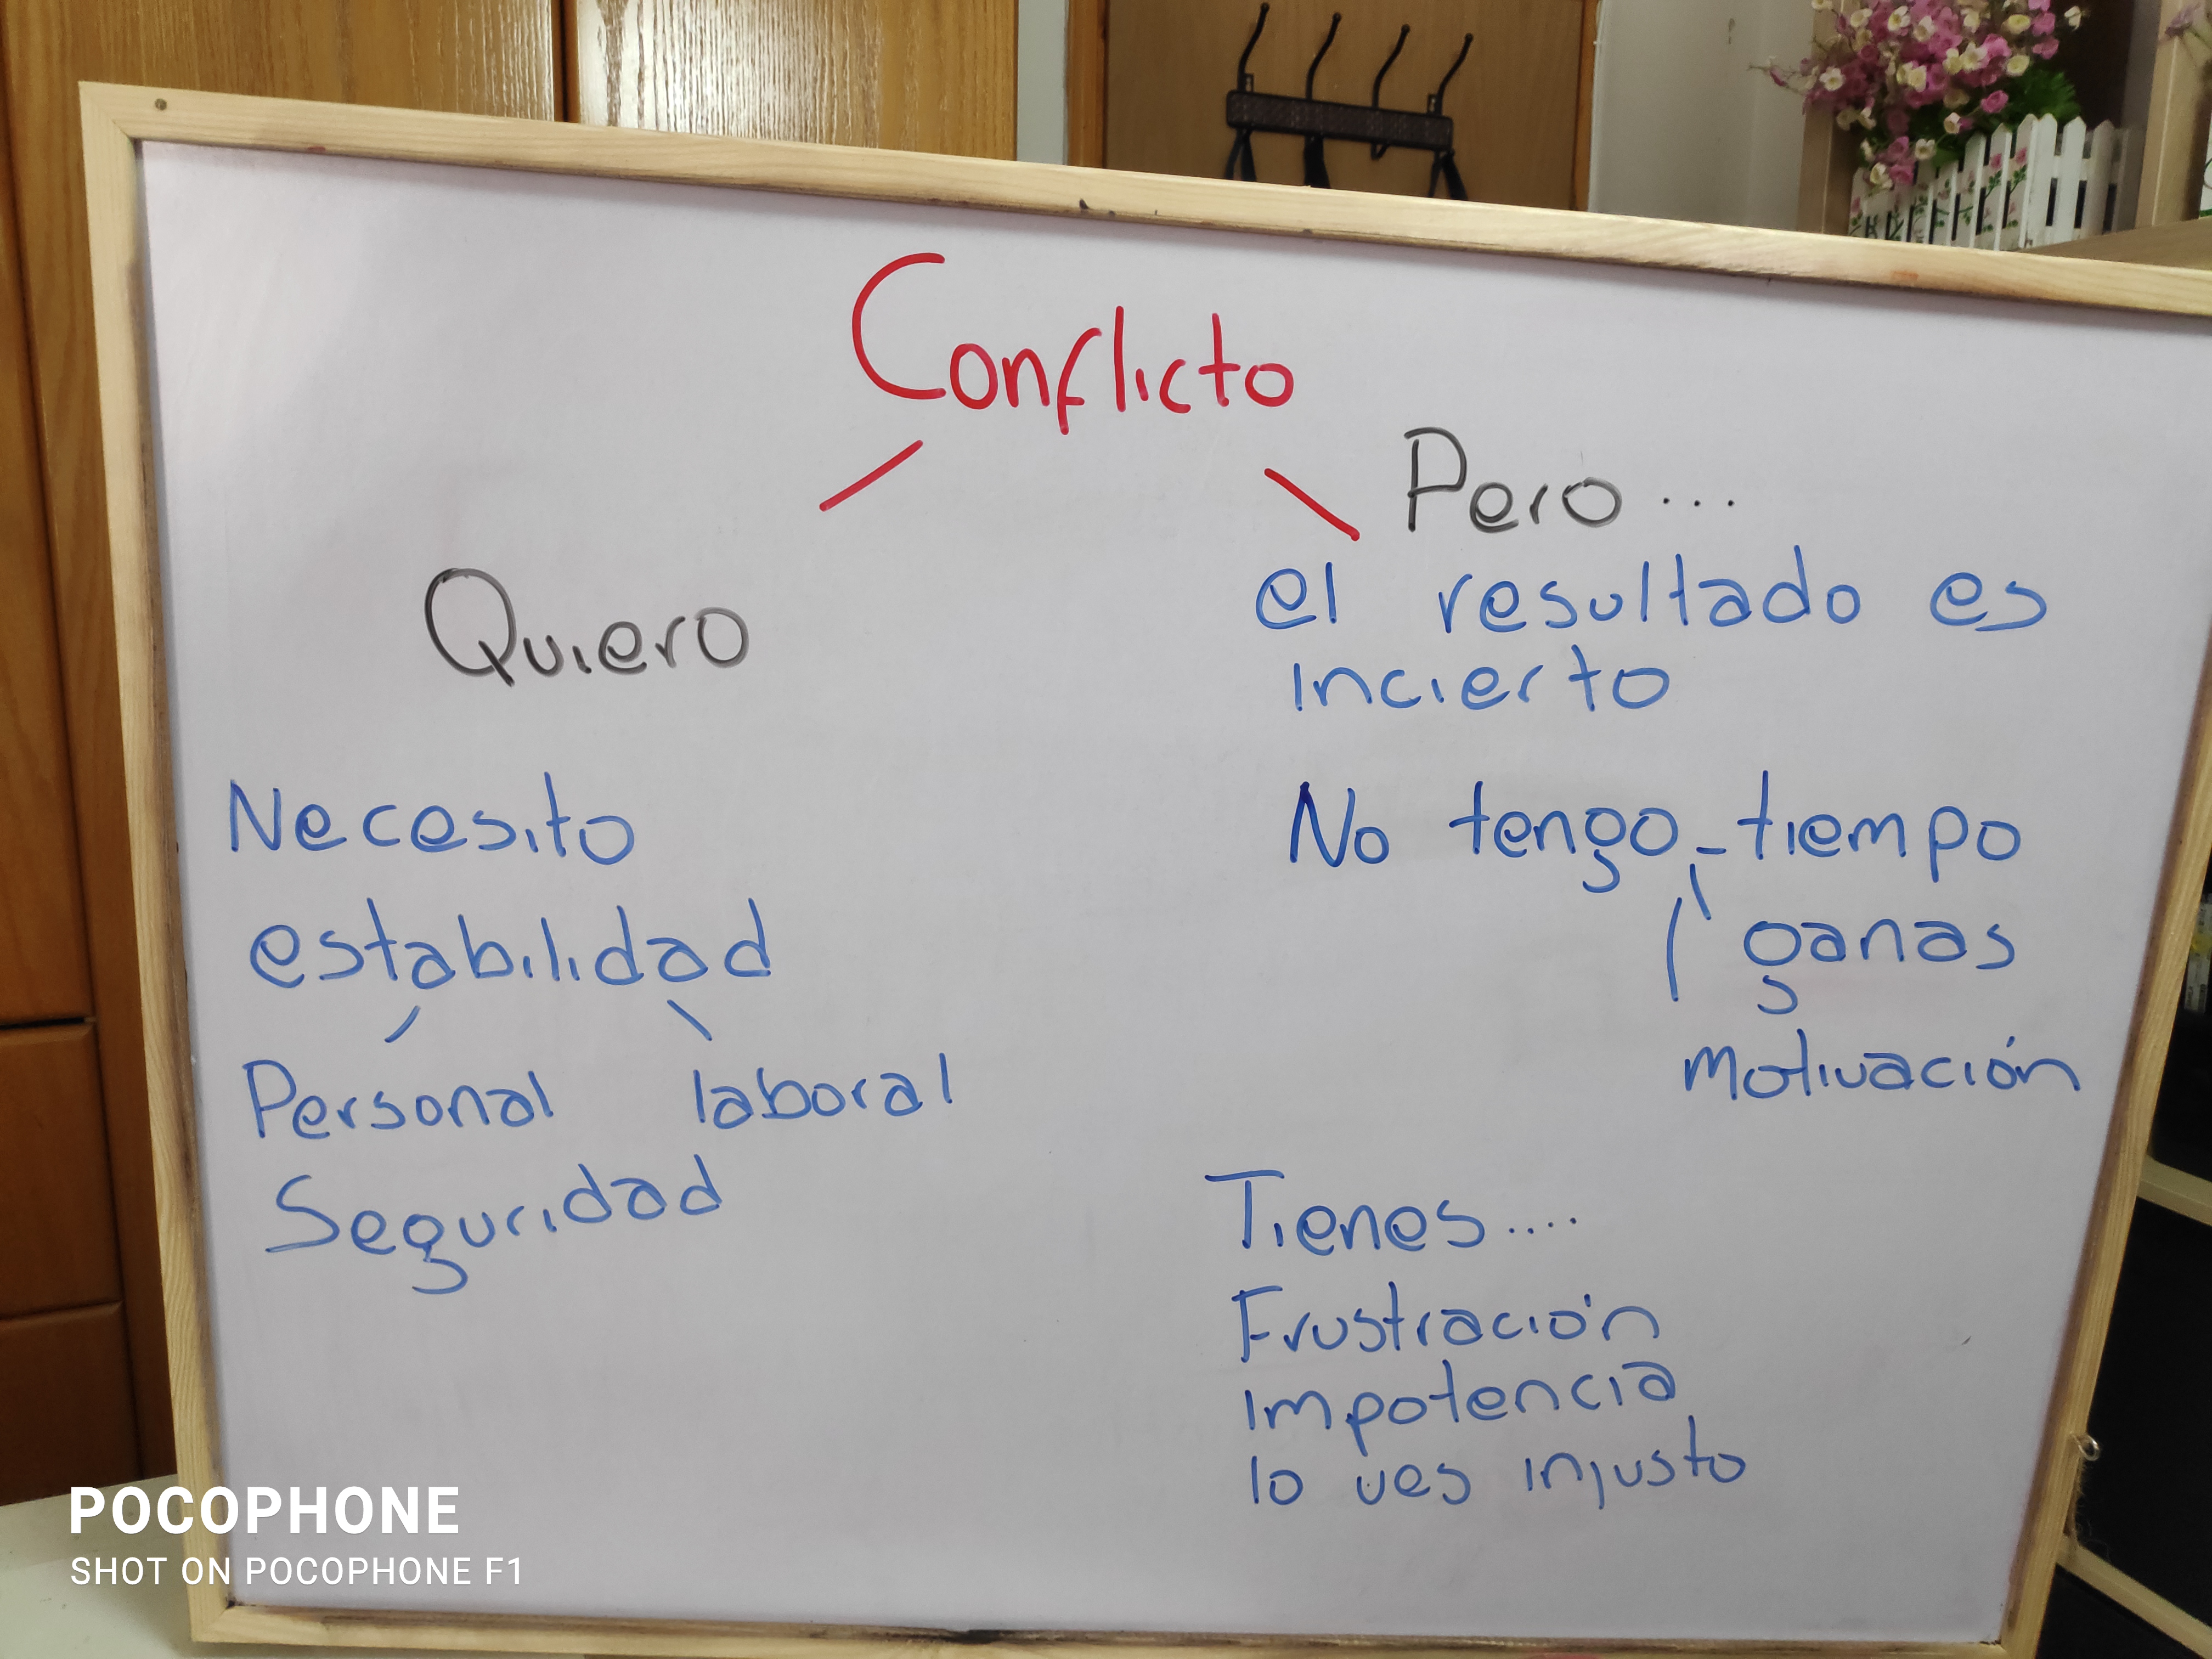 Conflicto
Quiero
Necesito
estabilidad
Personal laboral
Seguridad
Pero ...
el resultado es
incierto
No tengo - tiempo
ganas
motivación
Tienes ....
Frustración
impotencia
lo ves injusto
POCOPHONE
SHOT ON POCOPHONE F1